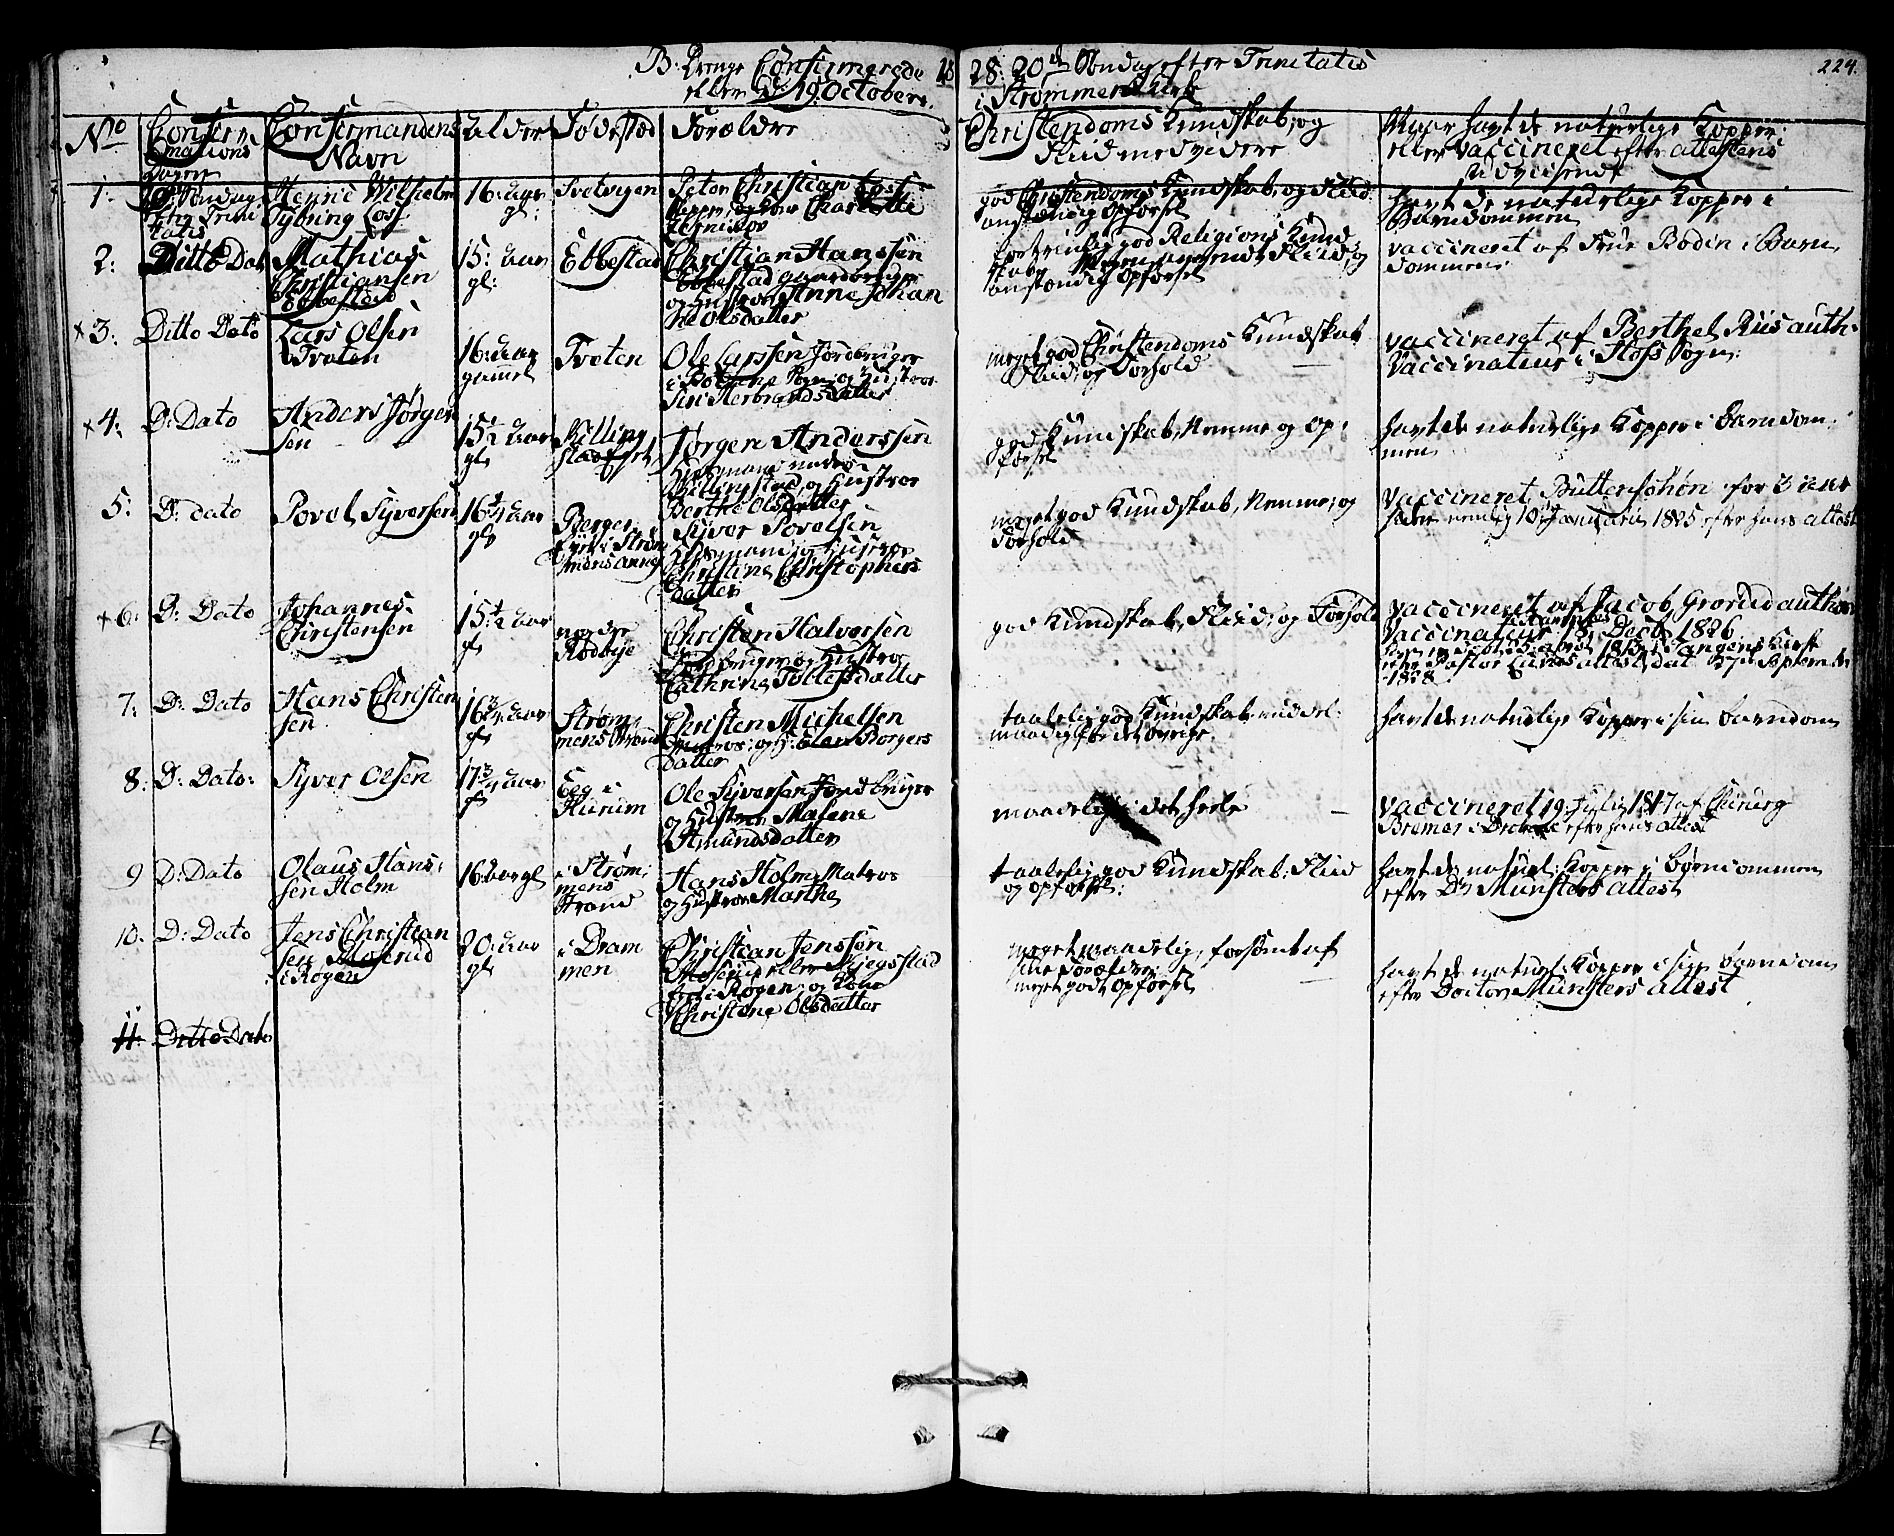 B: Drenge Confirmerede 18
eller D: 19 October
28. 20d Søndag efter Trinitatis
i Strømmens Kirke
224.
No
Confirmations Dagen
Confirmandens Navn
Alder
Fødested
Forældre
Christendoms Kundskab, og
Flid med videre
Naar havt de naturlige Kopper
eller vaccineret efter attestens
Udvisende
1. 20 Søndag efter Trinitatis
Henric Wilhelm
Tybring Coss
16: Aar gl:
Svelvigen
Peter Christian Coss
og Kone Charlotte
god Christendoms Kundskab, og Flid
anstændig Opførsel
havt de naturlige Kopper i
Barndommen
2: Ditto Dato
Mathias
Christiansen
Ebbestad
15: Aar
gl:
Ebbestad
Christian Hanssen
Ebbestad gaardbruger
og Hustroe Anne Johan
ne Olsdatter
fortrinlig god Religions Kund
skab, Flid, og
anstændig Opførsel
vaccineret af Frue Bodin i Barn
dommen
x 3: Ditto Dato
Lars Olsen
Tveten
16: Aar
gammel
Tveten
Ole Larssen Jordbruger
og Hustroe
Siri Herbrandsdatter
meget god Christendoms Kundskab
Flid, og Forhold
vaccineret af Berthel Riis auth:
Vaccinateur i Sogn:
x 4: D: Dato
Anders Jørgen
sen
15½ Aar
gl
Jørgen Anderssen
Huusmand under
og Hustroe
Berthe Olsdatter
god Kundskab, Nemme og Op:
førsel
havt de naturlige Kopper i Barndom:
men
5: D: dato
Povel Syversen
16¼ Aar
gl
Berger
Syver Povelsen
Huusmand og Hustroe
Christine Christophers
datter
meget god Kundskab, Nemme, og
Forhold
vaccineret Buttenschøn for 3 aar
siden nemlig 10 Januarii 1825 efter hans attest
x 6: D: Dato
Johannes
Christensen
15½ Aar
gl
nedre
Rødbye
Christen Halvorsen
Jordbruger og Hustroe
Cathrine Tollefsdatter
god Kundskab, Flid, og Forhold
vaccineret af Jacob Grorud author:
Vaccinateur 18 Decb 1826
1828
7: D: Dato
Hans Christen
sen
16¾ Aar
gl
Strøm
mens Strand
Christen Michelsen
Matros, og Borgers
datter
taalelig god Kundskab, middel:
maadig for det øvrige
havt de naturlige Kopper i sin barndom
8: D: Dato:
Syver Olsen
17¾ Aar
gl
Eeg i
Hurum
Ole Syversen Jord bruger
og Hustroe Malene
Amundsdatter
maadelig i det heele
vaccineret 19 Julii 1817 af Chirurg
Bremer i Drobak efter hans attest
9 D: Dato
Olaus Hans:
sen Holm
16: Aar gl
i Strøm:
mens
Strand
Hans Holm Matros
og Hustroe Marthe
taalelig god Kundskab, Flid
og opførsel:
havt de naturl: Kopper i børndommen
efter Dr Münsters attest
10: D: Dato
Jens Christian
sen Moserud
i Røgen
20: Aar
gl
i Dram
men
Christian Jenssen
Moserud eller Kjegstad
i Røgen, og Kone
Christine Olsdatter
meget maadelig, forsømt af
sine Forældre
meget god Opførsel
havt de naturl: Kopper i sin barndom
efter Doctor Münsters attest
11. Ditto Dato